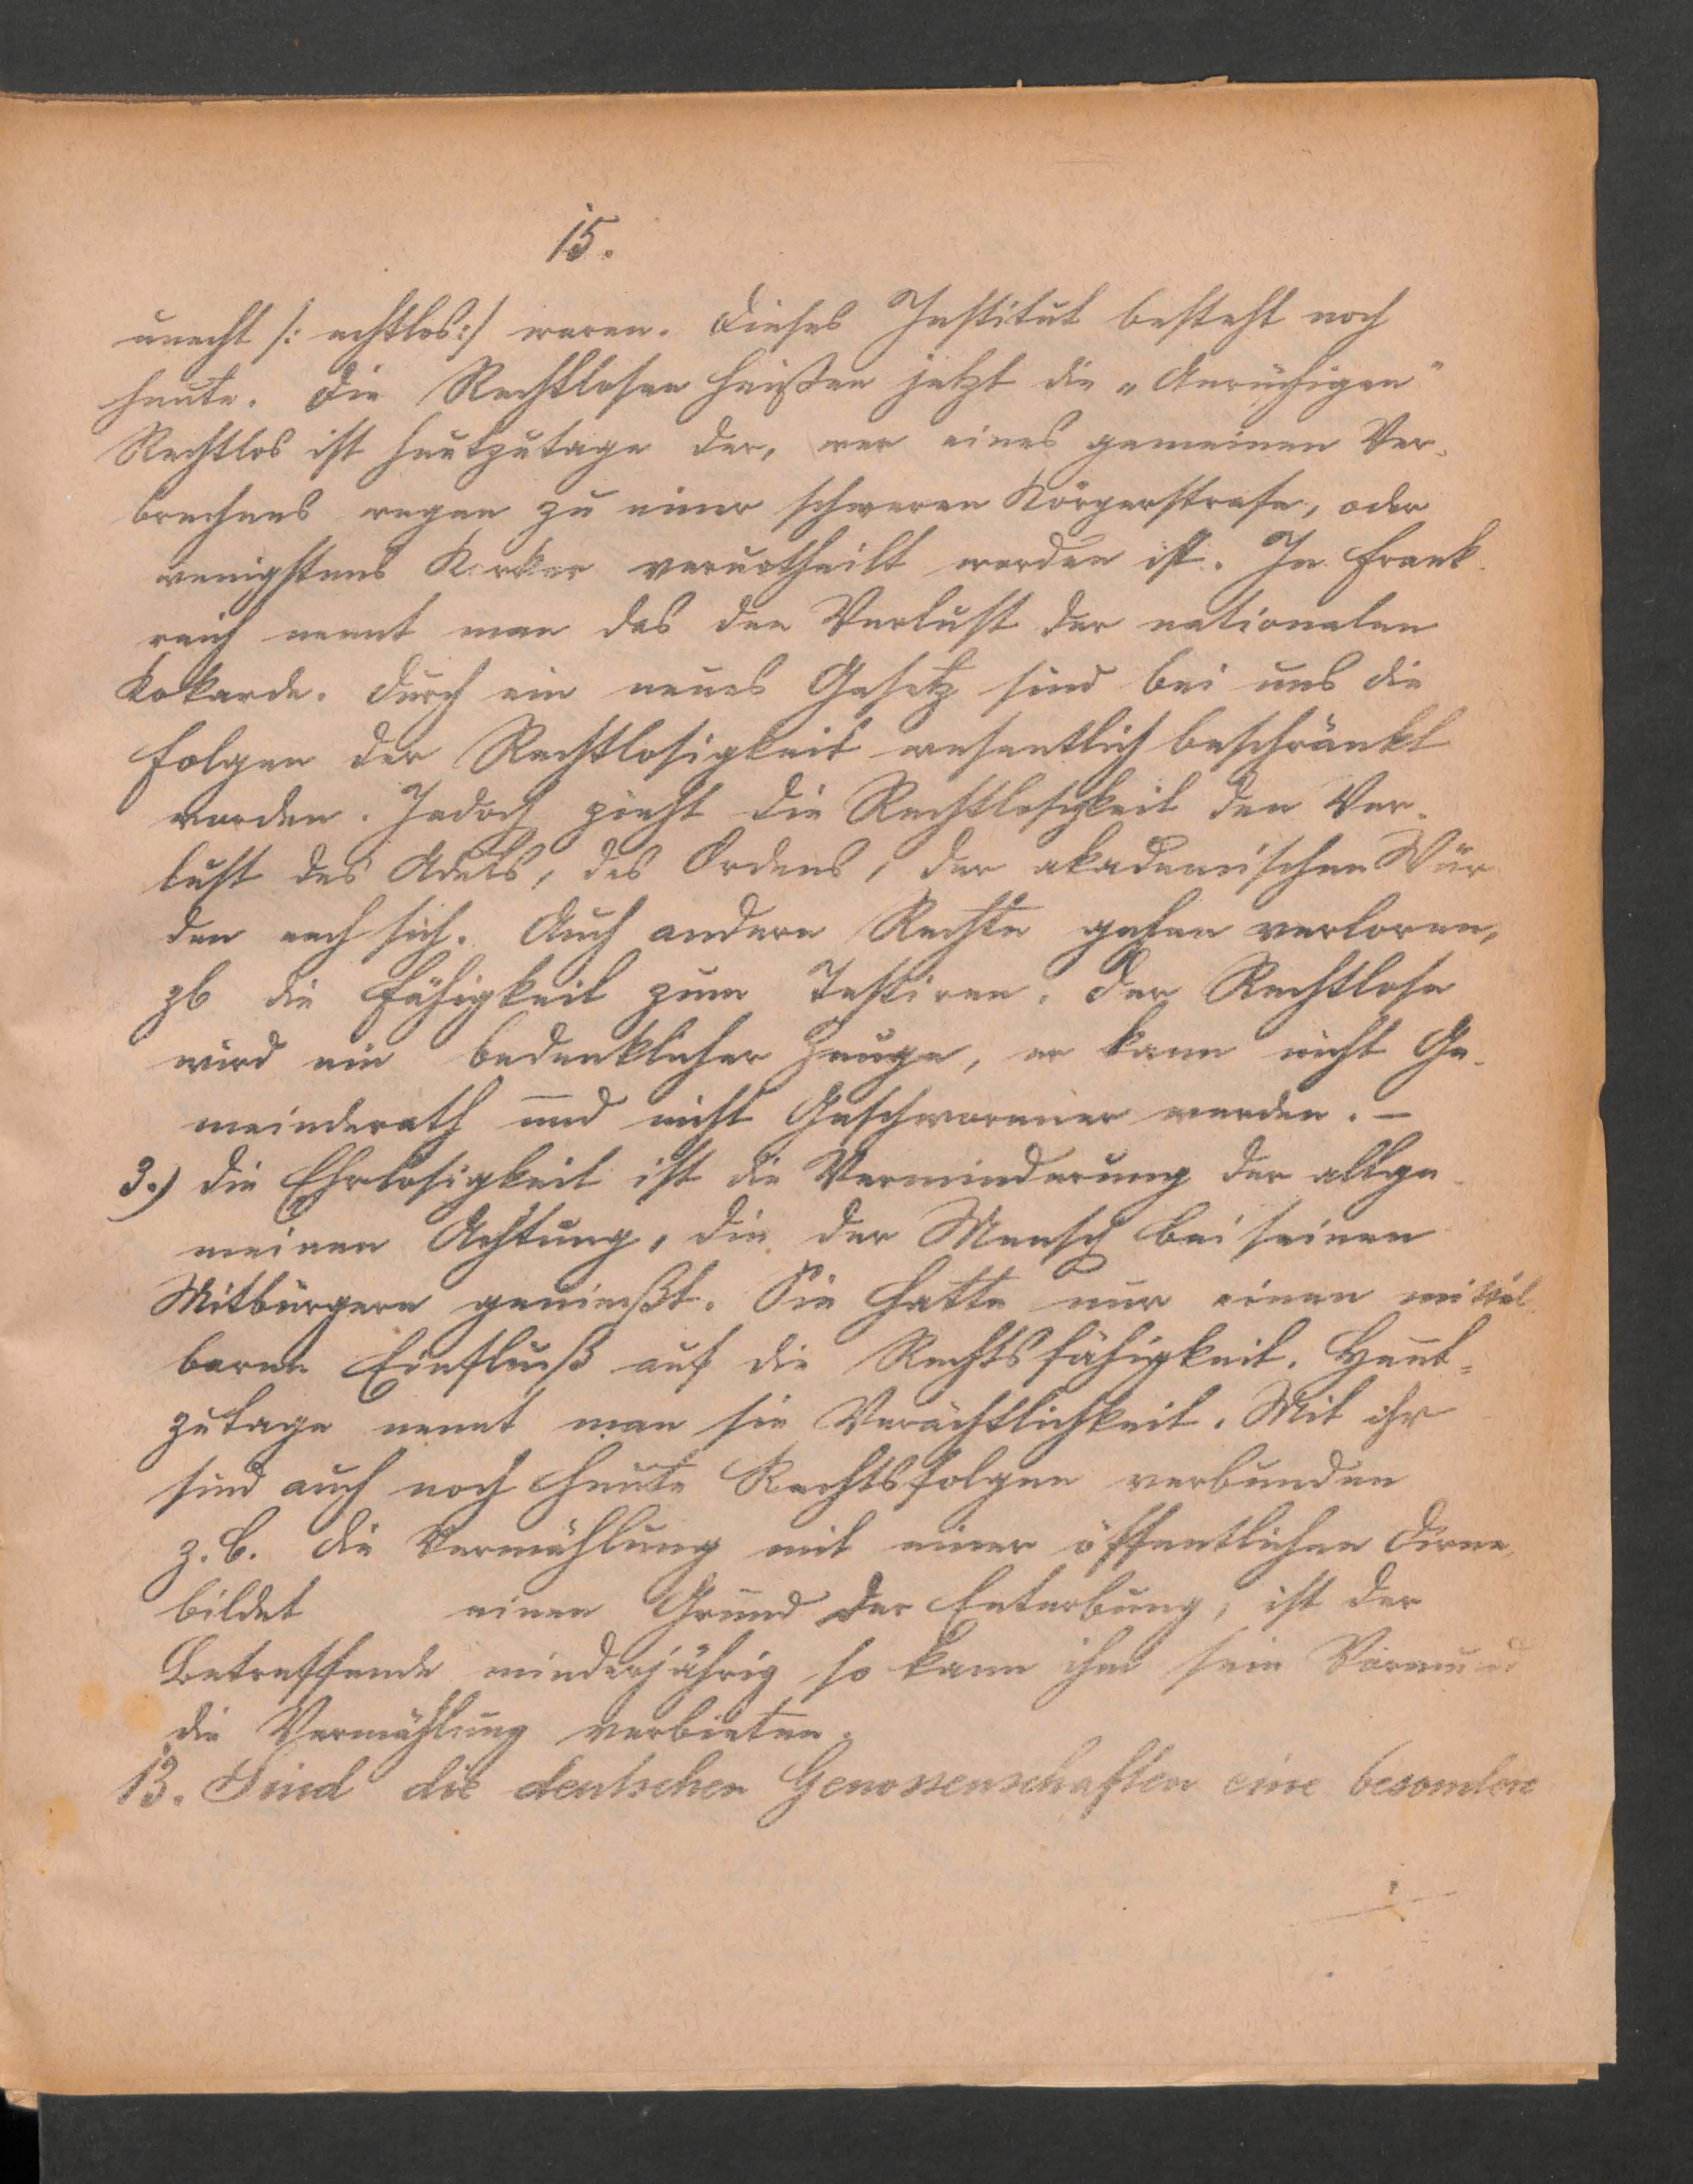 15.
unecht /: echtlos:/ waren. Dieses Institut besteht noch
heute. Die Rechtlosen heißen jetzt die „Anrüchigen"
Rechtlos ist heutzutage der, wer eines gemeinen Ver-
brechens wegen zu einer schweren Körperstrafe, oder
wenigstens Kerker verurtheilt worden ist. In Frank-
reich nennt man das den Verlust der nationalen
Kokarde. Durch ein neues Gesetz sind bei uns die
Folgen der Rechtlosigkeit wesentlich beschränkt
worden. Jedoch zieht die Rechtlosigkeit den Ver-
lust des Adels, des Ordens, der akademischen Wür
den nach sich. Auch andere Rechte gehen verloren,
zb die Fähigkeit zum Testiren. Der Rechtlose
wird ein bedenklicher Zeuge, er kann nicht Ge-
meinderath und nicht Geschworener werden. –
3.) Die Ehrlosigkeit ist die Verminderung der allge-
meinen Achtung, die der Mensch bei seinen
Mitbürgern genießt. Sie hatte nur einen mittel-
baren Einfluß auf die Rechtsfähigkeit. Heut-
zutage nennt man sie Verächtlichkeit. Mit ihr
sind auch noch heute Rechtsfolgen verbunden
z.B. die Vermählung mit einer öffentlichen Dirne,
bildet einen Grund der Enterbung; ist der
Betreffende minderjährig so kann ihm sein Vormund
die Vermählung verbieten.
13. Sind die deutschen Genossenschaften eine besondere